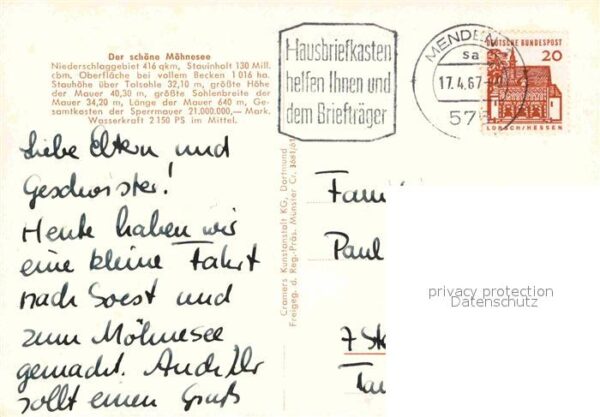 Der schöne Möhnesee
Niederschlaggebiet 416 qkm, Stauinhalt 130 Mill.
cbm. Oberfläche bei vollem Becken 1016 ha.
Stauhöhe über Talsohle 32,10 m, größte Höhe
der Mauer 40,30 m, größte Sohlenbreite der
Mauer 34,20 m, Länge der Mauer 640 m, Ge-
samtkosten der Sperrmauer 21.000.000,— Mark.
Wasserkraft 2150 PS im Mittel.
Liebe Eltern und
Geschwister!
Heute haben wir
eine kleine Fahrt
nach Soest und
zum Möhnesee
gemacht. Auch Ihr
sollt einen Gruß
Cramers Kunstanstalt KG, Dortmund
Freigeg. d. Reg.-Präs. Münster Cr. 3681/61
Hausbriefkasten
helfen Ihnen und
dem Briefträger
MENDEN
sa
17.4.67
575
DEUTSCHE BUNDESPOST
20
LORSCH/HESSEN
Fam
Paul
7 St
privacy protection
Datenschutz